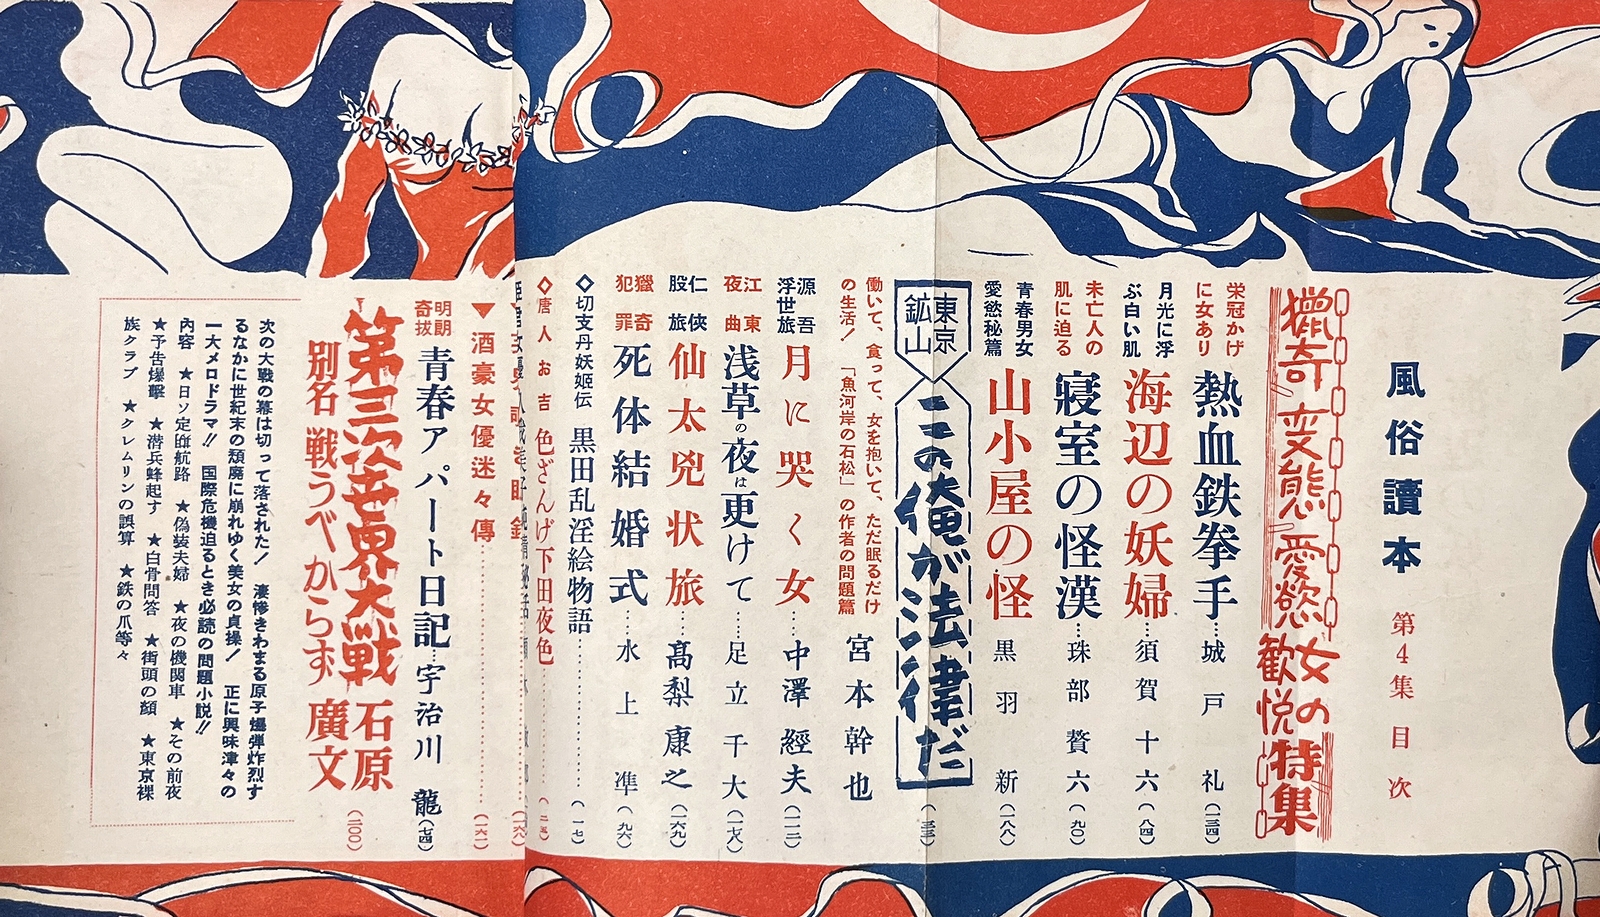 風俗讀本
第4集 目次
獵奇 変態 愛慾 女の歓悦 特集
栄冠かげに女あり
熱血鉄拳手…城戸礼(一三四)
月光に浮ぶ白い肌
海辺の妖婦…須賀十六(八四)
未亡人の肌に迫る
寝室の怪漢…珠部贅六(九〇)
青春男女愛慾秘篇
山小屋の怪 黒羽新(一八八)
東京鉱山
この俺が法律だ
働いて、食って、女を抱いて、ただ眠るだけの生活!「魚河岸の石松」の作者の問題篇
宮本幹也
源吾浮世旅
月に哭く女…中澤經夫(一一二)
江東夜曲
浅草の夜は更けて…足立千大(一七八)
仁俠股旅
仙太兇状旅 高梨康之(一六九)
獵奇犯罪
死体結婚式…水上準(九六)
◇切支丹妖姫伝 黒田乱淫絵物語…(一七)
◇唐人お吉 色ざんげ下田夜色…
▼酒豪女優迷々傳…(一六一)
明朗奇拔
青春アパート日記 宇治川龍(七四)
第三次世界大戦
別名 戦うべからず
石原廣文(二〇〇)
次の大戦の幕は切って落された! 凄惨きわまる原子爆弾炸烈す
るなかに世紀末の頽廃に崩れゆく美女の貞操! 正に興味津々の
一大メロドラマ!! 国際危機迫るとき必読の問題小説!!
内容 ★日ソ定期航路 ★偽装夫婦 ★夜の機関車 ★その前夜
★予告爆撃 ★潜兵蜂起す ★白骨問答 ★街頭の顔 ★東京裸
族クラブ ★クレムリンの誤算 ★鉄の爪等々